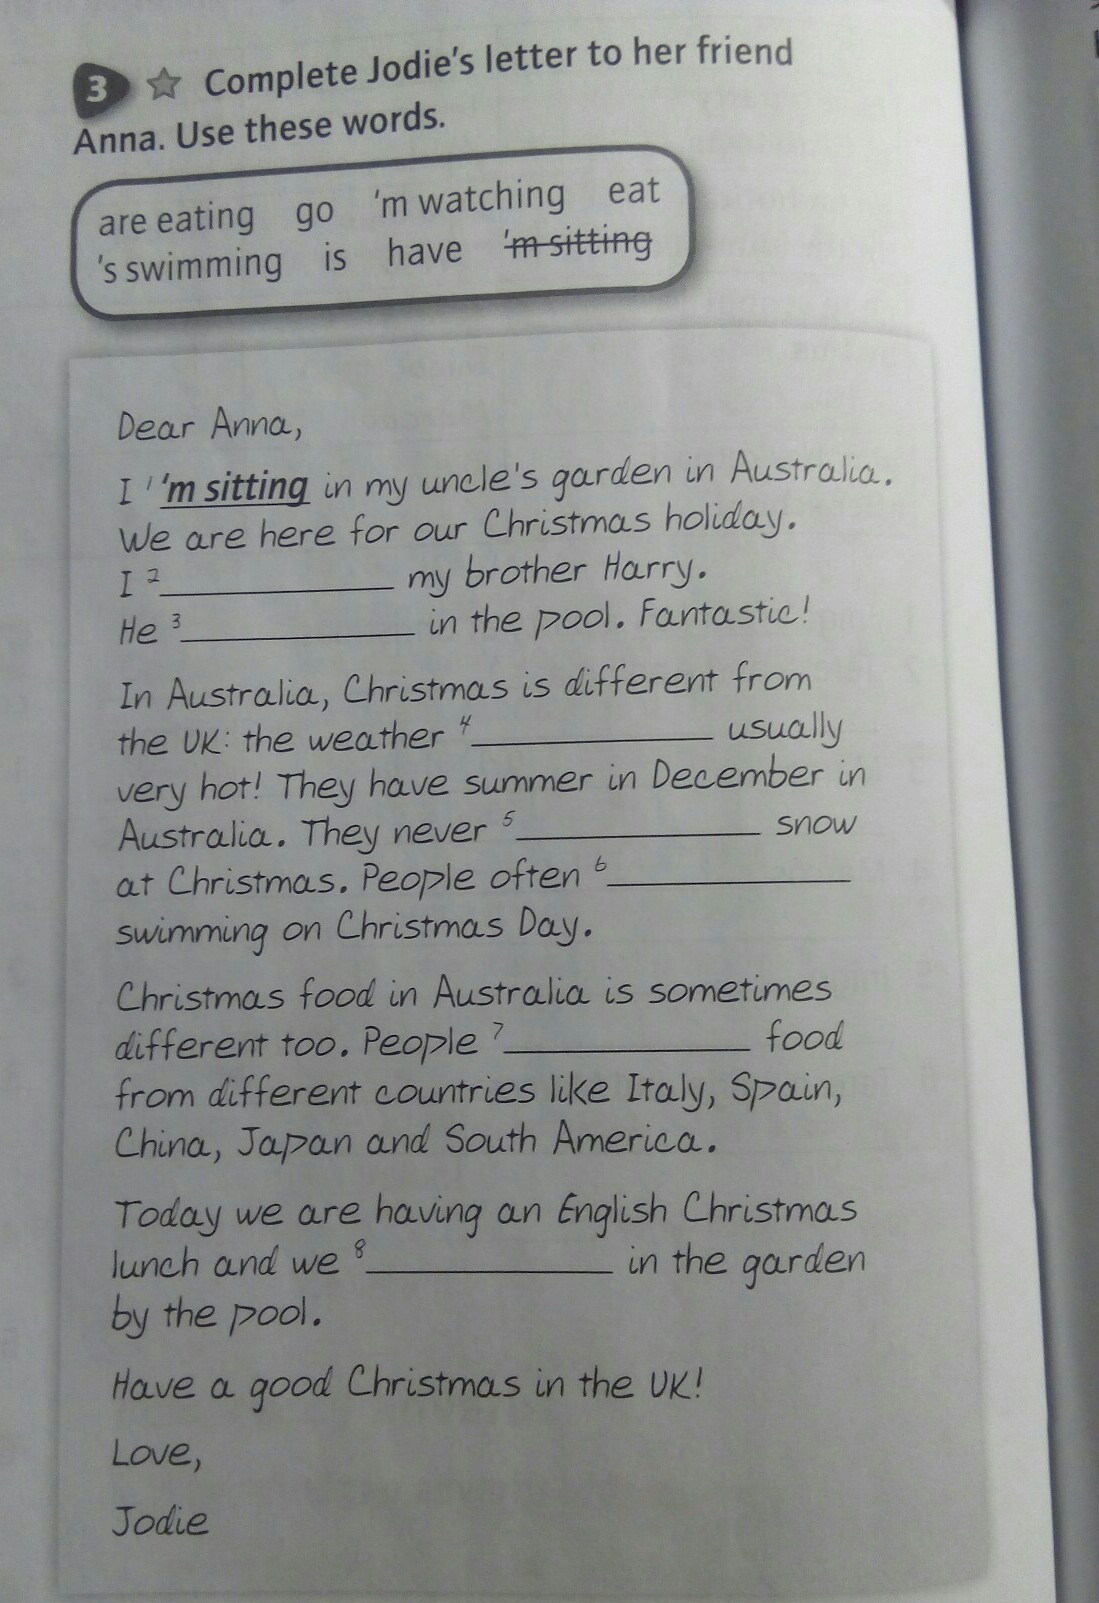 3 ☆ Complete Jodie's letter to her friend
Anna. Use these words.
are eating go 'm watching eat
's swimming is have 'm sitting
Dear Anna,
I 1 'm sitting in my uncle's garden in Australia.
We are here for our Christmas holiday.
I 2 ____________ my brother Harry.
He 3 ____________ in the pool. Fantastic!
In Australia, Christmas is different from
the UK: the weather 4 ____________ usually
very hot! They have summer in December in
Australia. They never 5 ____________ snow
at Christmas. People often 6 ____________
swimming on Christmas Day.
Christmas food in Australia is sometimes
different too. People 7 ____________ food
from different countries like Italy, Spain,
China, Japan and South America.
Today we are having an English Christmas
lunch and we 8 ____________ in the garden
by the pool.
Have a good Christmas in the UK!
Love,
Jodie